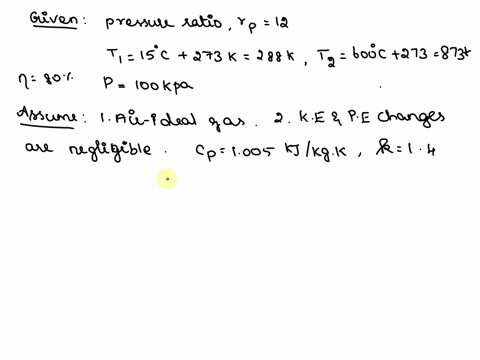 Given: pressure ratio, rp = 12
T1 = 15°C + 273 K = 288 K, T2 = 600°C + 273 = 873K
η = 80% P = 100 kpa
Assume: 1. Air-ideal gas. 2. K.E & P.E changes
are negligible. Cp = 1.005 KJ/kg.K, k = 1.4